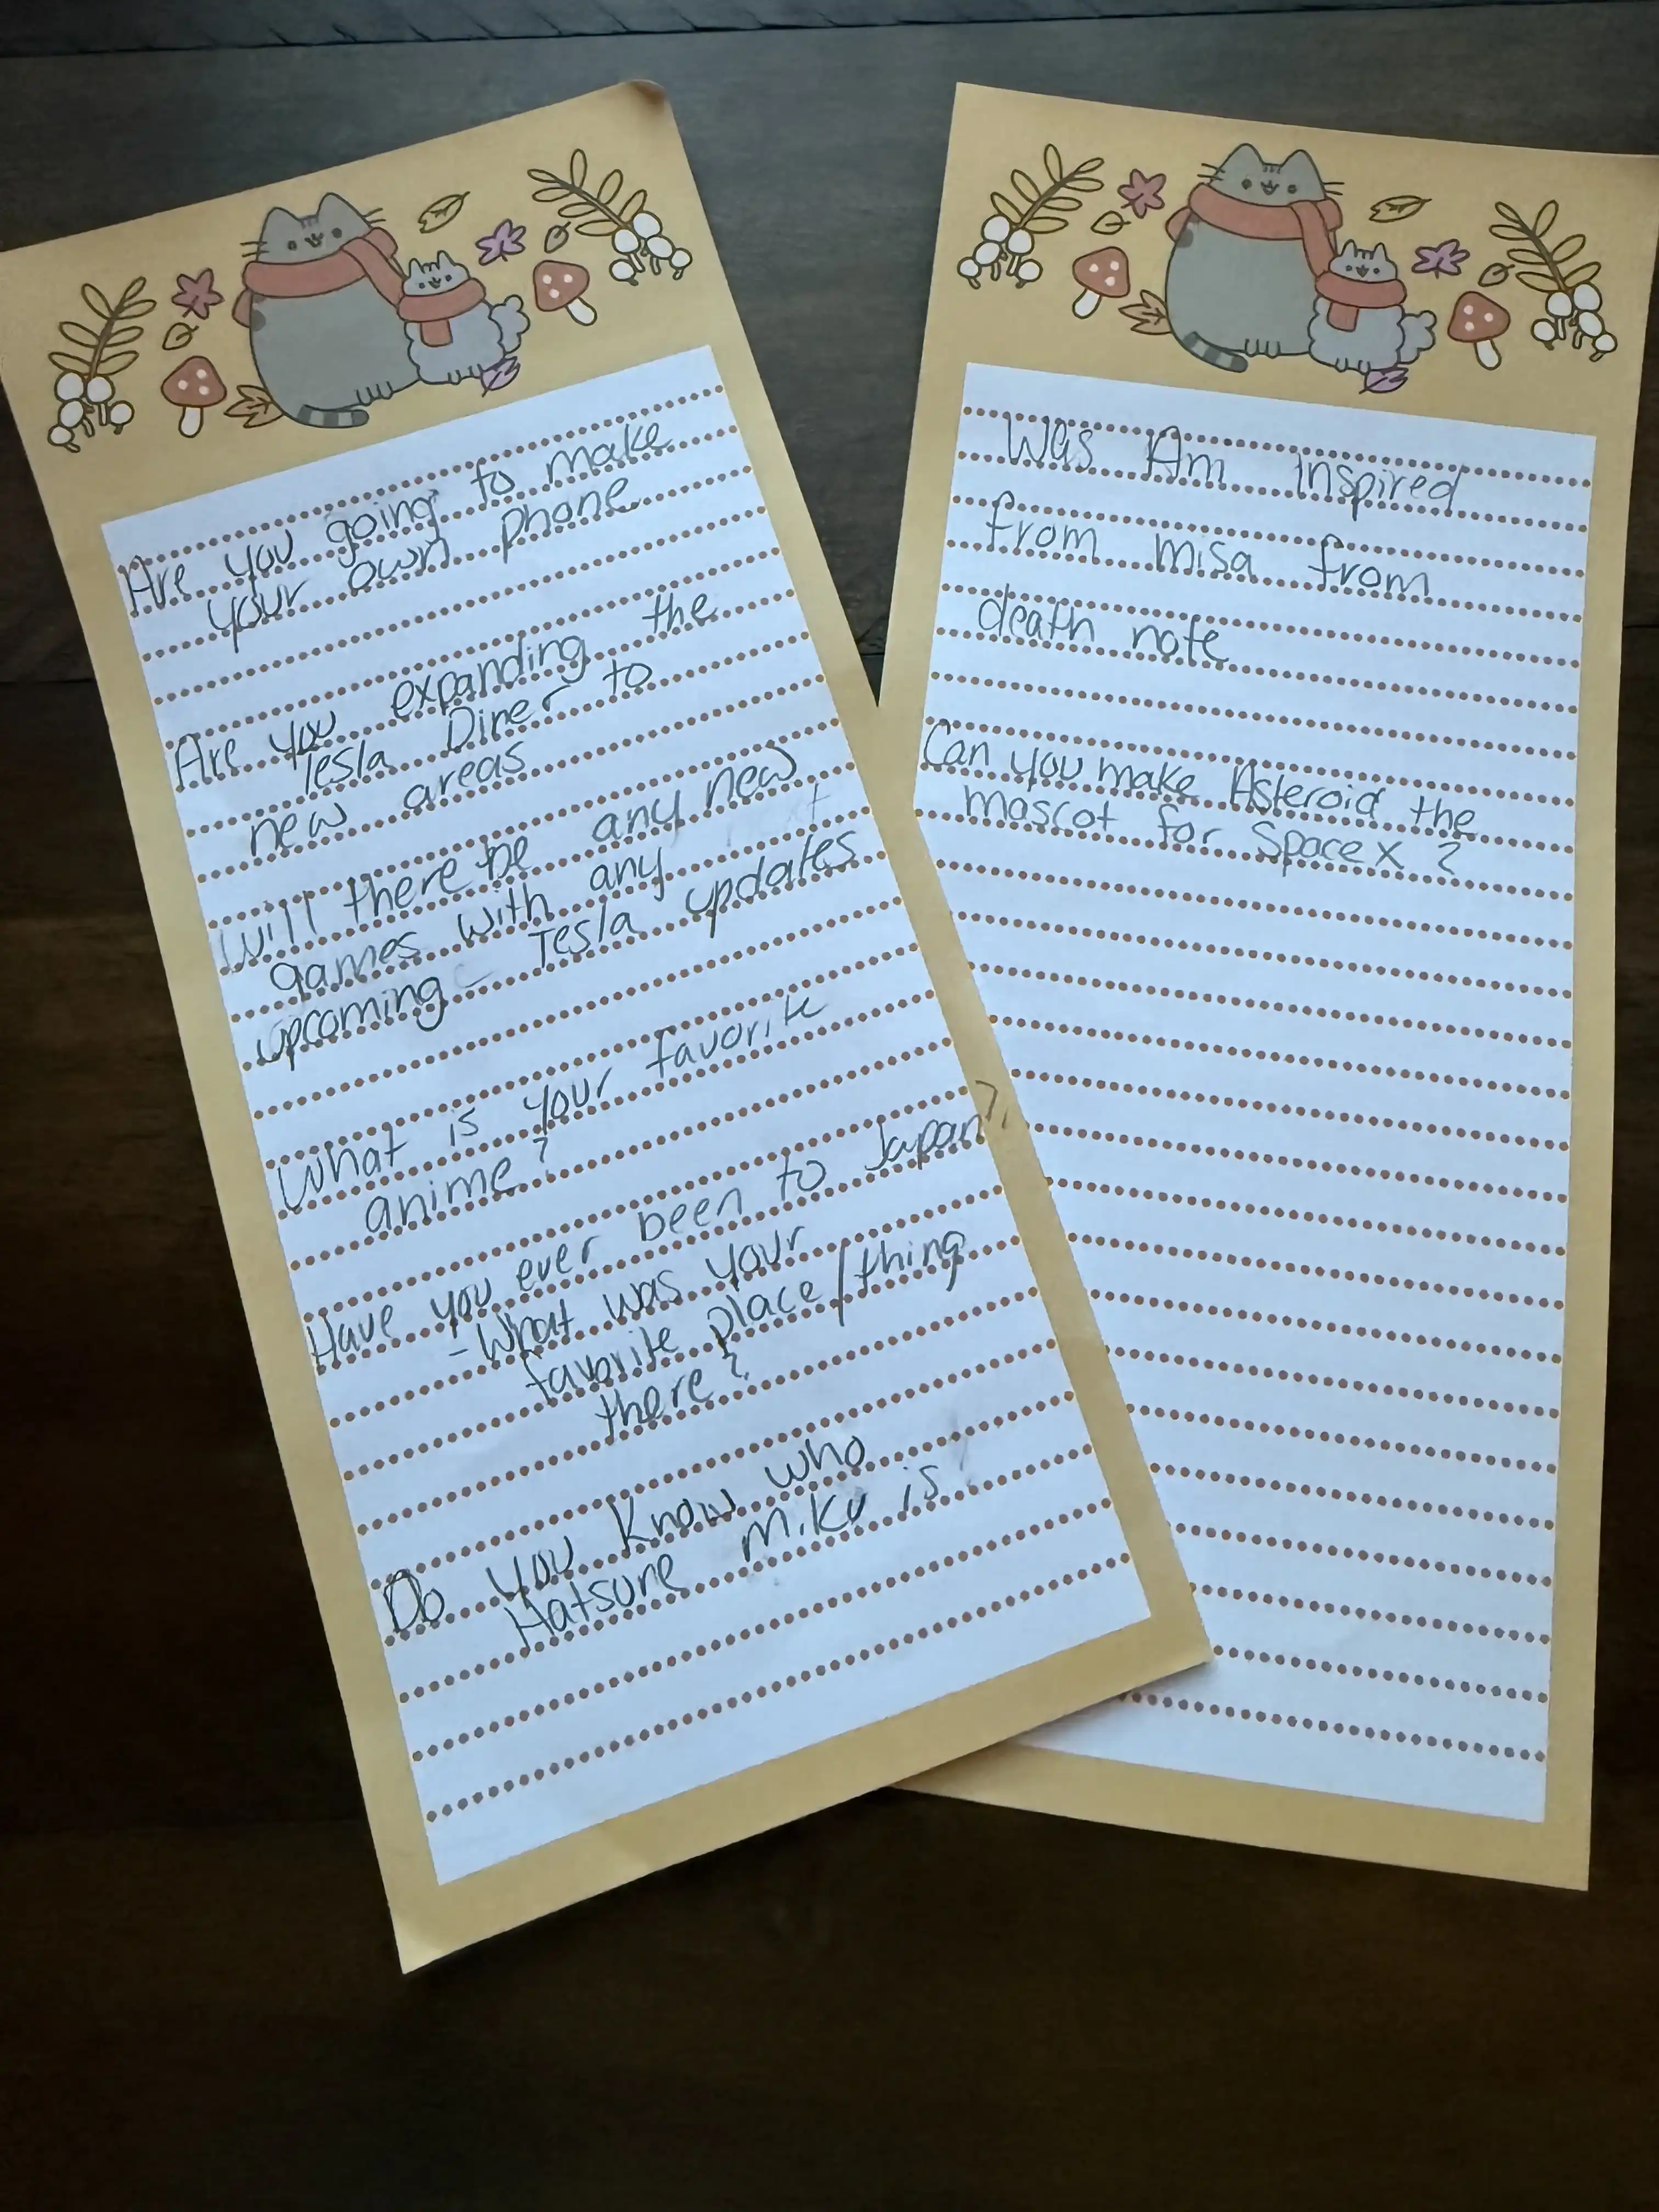 Are you going to make
your own phone
Are you expanding the
Tesla Diner to
new areas
Will there be any new
games with any
upcoming Tesla updates
What is your favorite
anime?
Have you ever been to Japan?
- What was your
favorite place/thing
there?
Do you know who
Hatsune Miku is
Was Am inspired
from misa from
death note
Can you make Asteroid the
mascot for Space X ?